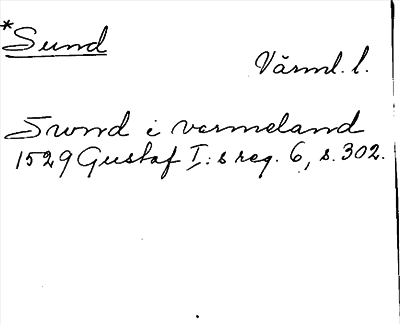 *Sund
Värml. l.
Swnd i vermeland
1529 Gustaf I:s reg. 6, s. 302.